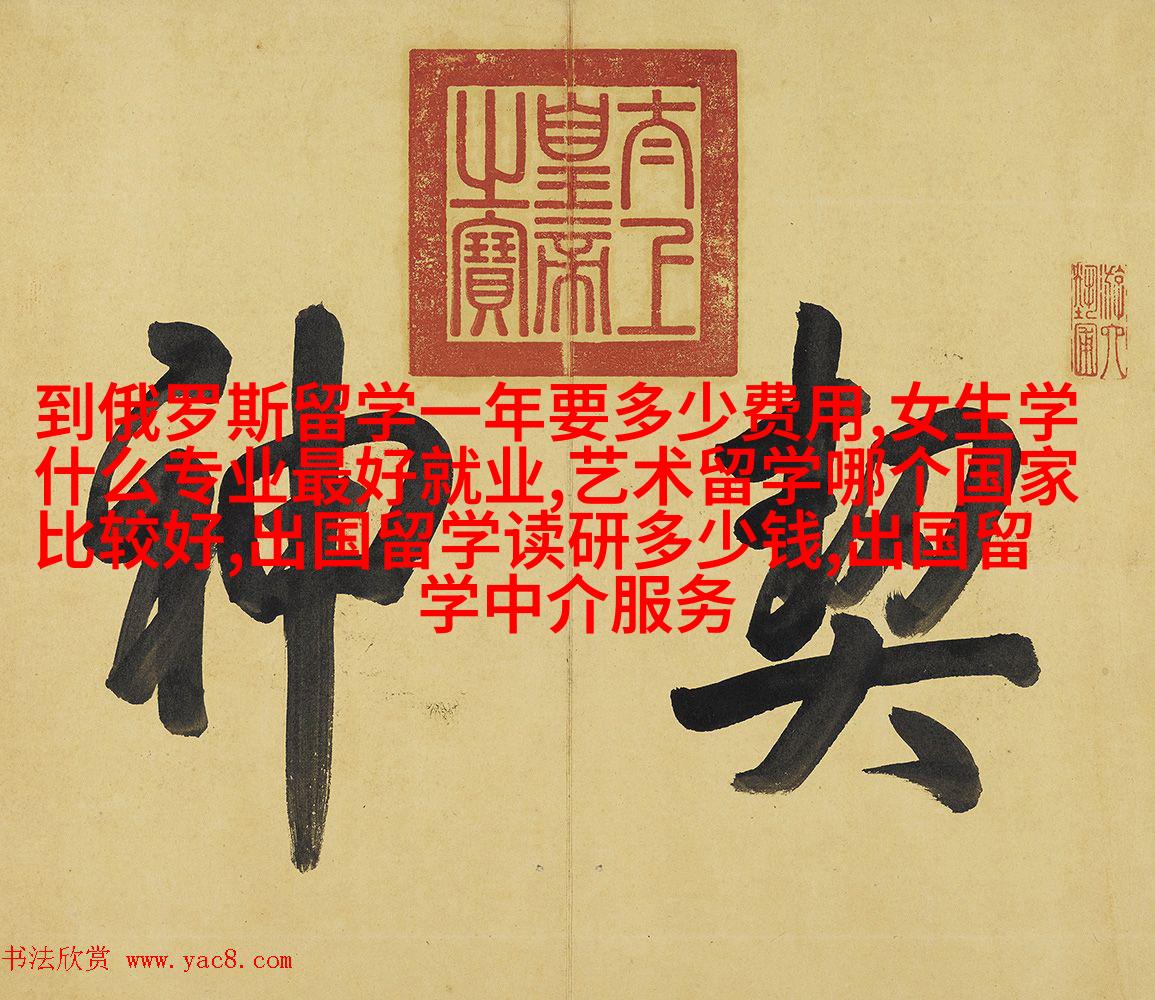 太上
皇帝
之寶
游六
藝圃
契神
到俄罗斯留学一年要多少费用,女生学
什么专业最好就业,艺术留学哪个国家
比较好,出国留学读研多少钱,出国留
学中介服务
书法欣赏 www.yac8.com